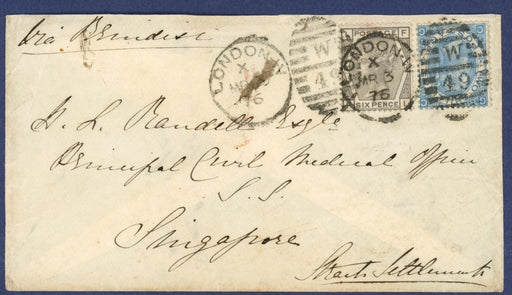 via Brindisi
LONDON·W
X
MR 3
76
W
49
POSTAGE
SIX PENCE
LONDON·W
X
MR 3
76
W
49
H. L. Randell Esqre
Principal Civil Medical Officer
S.S.
Singapore
Straits Settlements